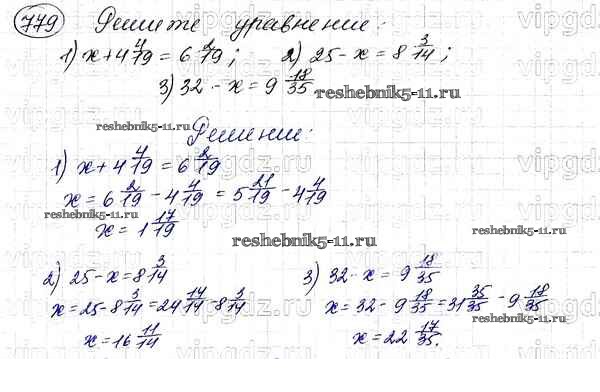 779 Решите уравнение:
1) x + 4 4/19 = 6 2/19; 2) 25 - x = 8 3/14;
3) 32 - x = 9 18/35
reshebnik5-11.ru
reshebnik5-11.ru
Решение:
1) x + 4 4/19 = 6 2/19
x = 6 2/19 - 4 4/19 = 5 21/19 - 4 4/19
reshebnik5-11.ru
x = 1 17/19
reshebnik5-11.ru
2) 25 - x = 8 3/14
3) 32 - x = 9 18/35
x = 25 - 8 3/14 = 24 14/14 - 8 3/14
x = 32 - 9 18/35 = 31 35/35 - 9 18/35
reshebnik5-11.ru
reshebnik5-11.ru
x = 16 11/14
x = 22 17/35.
vipgdz.ru